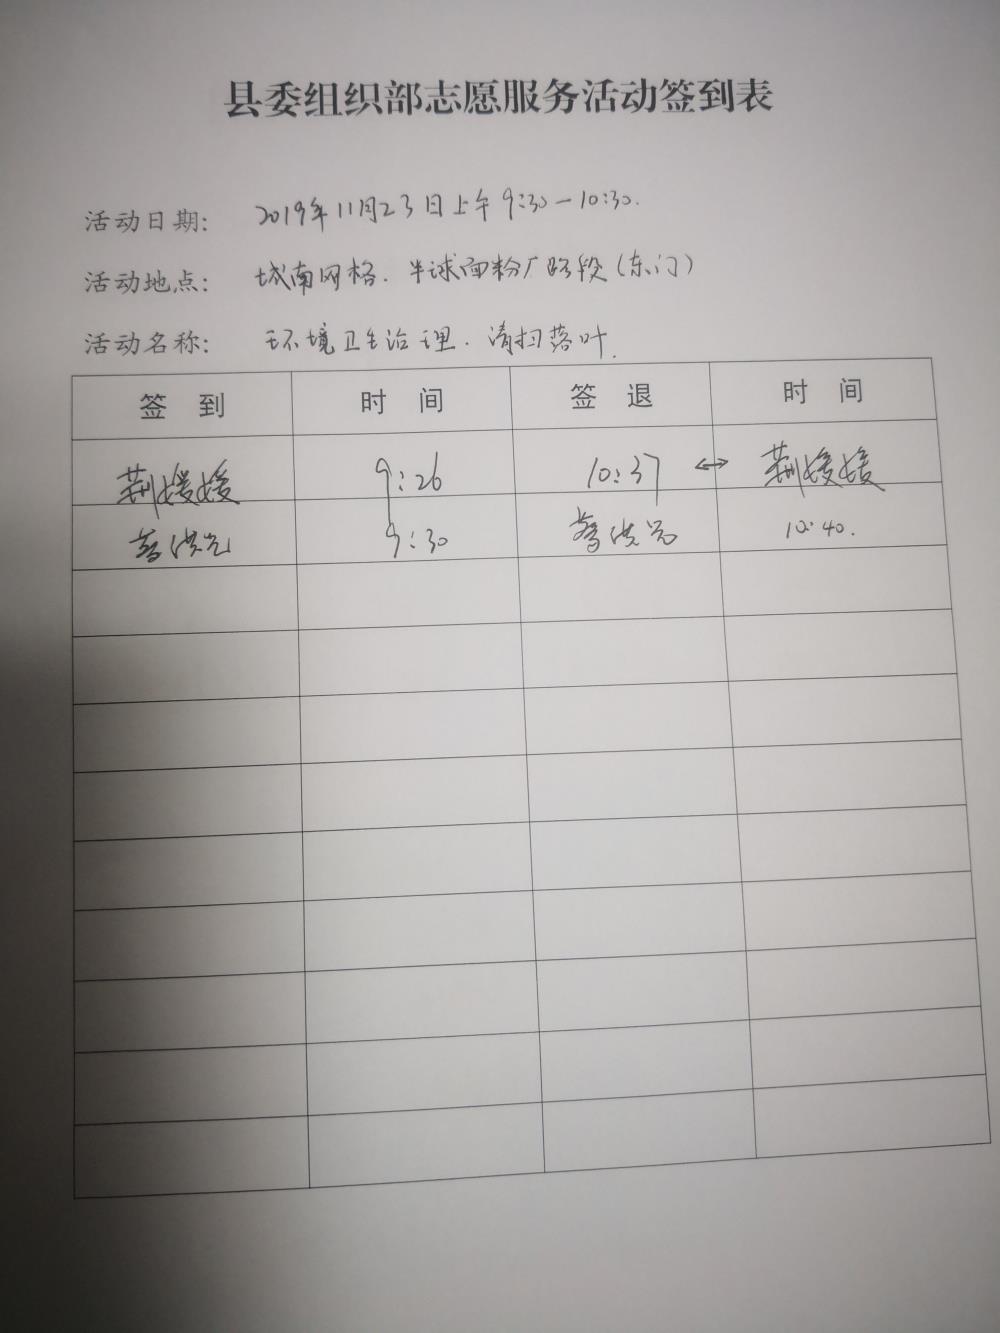 县委组织部志愿服务活动签到表
活动日期: 2019年11月23日上午9:30-10:30.
活动地点: 城南网格. 半球面粉厂路段(东门)
活动名称: 环境卫生治理. 清扫落叶.
签 到 时 间 签 退 时 间
荆媛媛 9:26 10:37 ↔ 荆媛媛
9:30 10:40.